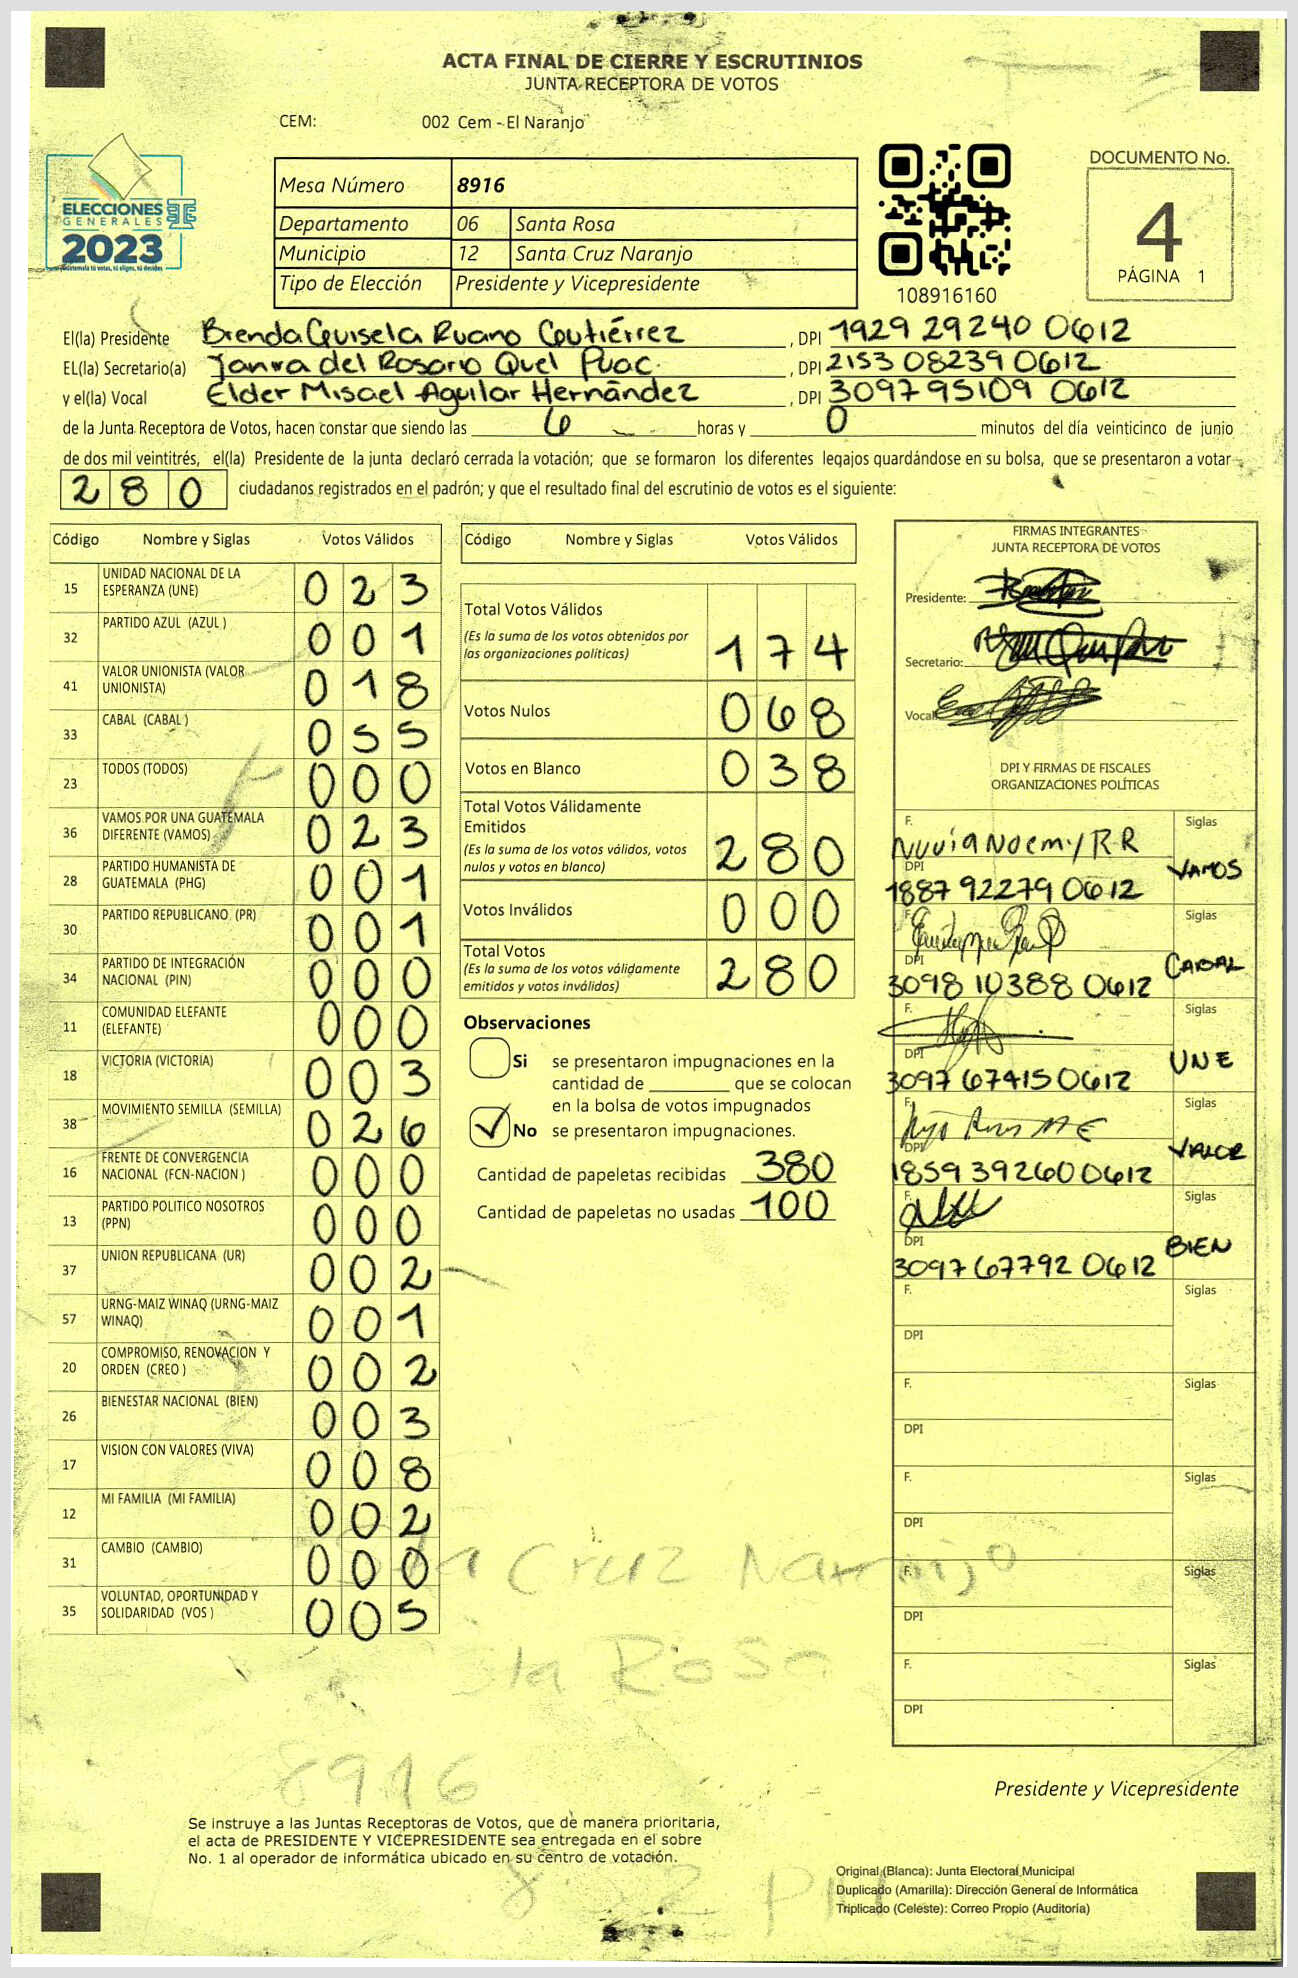 ACTA FINAL DE CIERRE Y ESCRUTINIOS
JUNTA RECEPTORA DE VOTOS
CEM: 002 Cem - El Naranjo
ELECCIONES
GENERALES
2023
Mesa Número 8916
Departamento 06 Santa Rosa
Municipio 12 Santa Cruz Naranjo
Tipo de Elección Presidente y Vicepresidente
108916160
DOCUMENTO No.
4
PÁGINA 1
El(la) Presidente Brenda Guisela Ruano Gutiérrez, DPI 1929 29240 0612
EL(la) Secretario(a) del Rosario Quel Puac, DPI 2153 08239 0612
y el(la) Vocal Elder Misael Aguilar Hernández, DPI 3097 95109 0612
de la Junta Receptora de Votos, hacen constar que siendo las 6 horas y 0 minutos del día veinticinco de junio
de dos mil veintitrés, el(la) Presidente de la junta declaró cerrada la votación; que se formaron los diferentes legajos guardándose en su bolsa, que se presentaron a votar
280 ciudadanos registrados en el padrón; y que el resultado final del escrutinio de votos es el siguiente:
Código Nombre y Siglas Votos Válidos
15 UNIDAD NACIONAL DE LA ESPERANZA (UNE) 023
32 PARTIDO AZUL (AZUL ) 001
41 VALOR UNIONISTA (VALOR UNIONISTA) 018
33 CABAL (CABAL ) 055
23 TODOS (TODOS) 000
36 VAMOS POR UNA GUATEMALA DIFERENTE (VAMOS) 023
28 PARTIDO HUMANISTA DE GUATEMALA (PHG) 001
30 PARTIDO REPUBLICANO (PR) 001
34 PARTIDO DE INTEGRACIÓN NACIONAL (PIN) 000
11 COMUNIDAD ELEFANTE (ELEFANTE) 000
18 VICTORIA (VICTORIA) 003
38 MOVIMIENTO SEMILLA (SEMILLA) 026
16 FRENTE DE CONVERGENCIA NACIONAL (FCN-NACION ) 000
13 PARTIDO POLITICO NOSOTROS (PPN) 000
37 UNION REPUBLICANA (UR) 002
57 URNG-MAIZ WINAQ (URNG-MAIZ WINAQ) 001
20 COMPROMISO, RENOVACION Y ORDEN (CREO ) 002
26 BIENESTAR NACIONAL (BIEN) 003
17 VISION CON VALORES (VIVA) 008
12 MI FAMILIA (MI FAMILIA) 002
31 CAMBIO (CAMBIO) 000
35 VOLUNTAD, OPORTUNIDAD Y SOLIDARIDAD (VOS ) 005
Código Nombre y Siglas Votos Válidos
Total Votos Válidos
(Es la suma de los votos obtenidos por
las organizaciones políticas) 174
Votos Nulos 068
Votos en Blanco 038
Total Votos Válidamente
Emitidos
(Es la suma de los votos válidos, votos
nulos y votos en blanco) 280
Votos Inválidos 000
Total Votos
(Es la suma de los votos válidamente
emitidos y votos inválidos) 280
Observaciones
Si se presentaron impugnaciones en la
cantidad de ________ que se colocan
en la bolsa de votos impugnados
No se presentaron impugnaciones.
Cantidad de papeletas recibidas 380
Cantidad de papeletas no usadas 100
FIRMAS INTEGRANTES
JUNTA RECEPTORA DE VOTOS
Presidente:
Secretario:
Vocal:
DPI Y FIRMAS DE FISCALES
ORGANIZACIONES POLÍTICAS
F. Nuvia Noemy R.R Siglas
DPI 1887 92279 0612 VAMOS
F. Siglas
DPI 3098 10388 0612 CABAL
F. Siglas
DPI 3097 67415 0612 UNE
F. Siglas
DPI 1859 39260 0612 VALOR
F. Siglas
DPI 3097 67792 0612 BIEN
F. Siglas
DPI
F. Siglas
DPI
F. Siglas
DPI
F. Siglas
DPI
F. Siglas
DPI
Sta Cruz Naranjo
Sta Rosa
8916
Presidente y Vicepresidente
Se instruye a las Juntas Receptoras de Votos, que de manera prioritaria,
el acta de PRESIDENTE Y VICEPRESIDENTE sea entregada en el sobre
No. 1 al operador de informática ubicado en su centro de votación.
Original (Blanca): Junta Electoral Municipal
Duplicado (Amarilla): Dirección General de Informática
Triplicado (Celeste): Correo Propio (Auditoría)